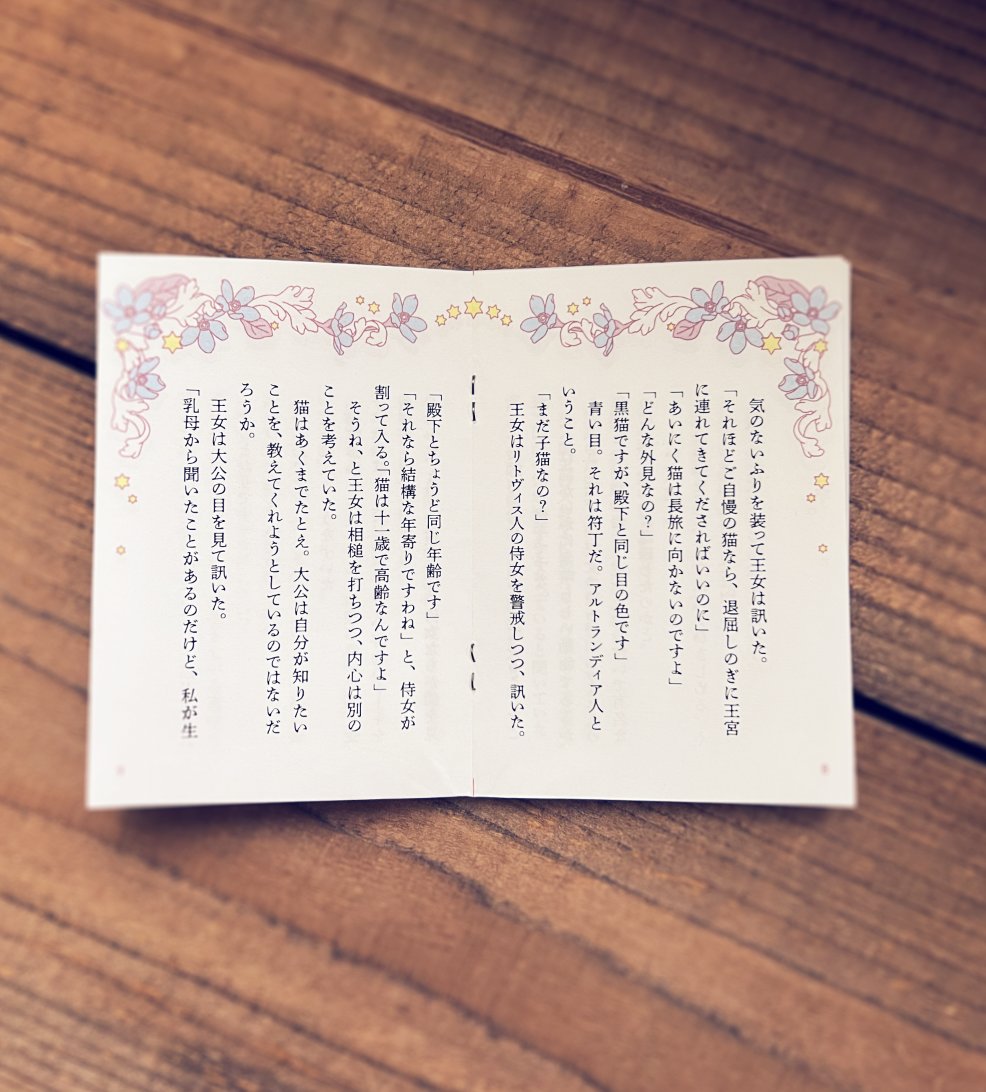 気のないふりを装って王女は訊いた。
「それほどご自慢の猫なら、退屈しのぎに王宮
に連れてきてくださればいいのに」
「あいにく猫は長旅に向かないのですよ」
「どんな外見なの?」
「黒猫ですが、殿下と同じ目の色です」
青い目。それは符丁だ。アルトランディア人と
いうこと。
「まだ子猫なの?」
王女はリトヴィス人の侍女を警戒しつつ、訊いた。
「殿下とちょうど同じ年齢です」
「それなら結構な年寄りですわね」と、侍女が
割って入る。「猫は十一歳で高齢なんですよ」
そうね、と王女は相槌を打ちつつ、内心は別の
ことを考えていた。
猫はあくまでたとえ。大公は自分が知りたい
ことを、教えてくれようとしているのではないだ
ろうか。
王女は大公の目を見て訊いた。
「乳母から聞いたことがあるのだけど、私が生